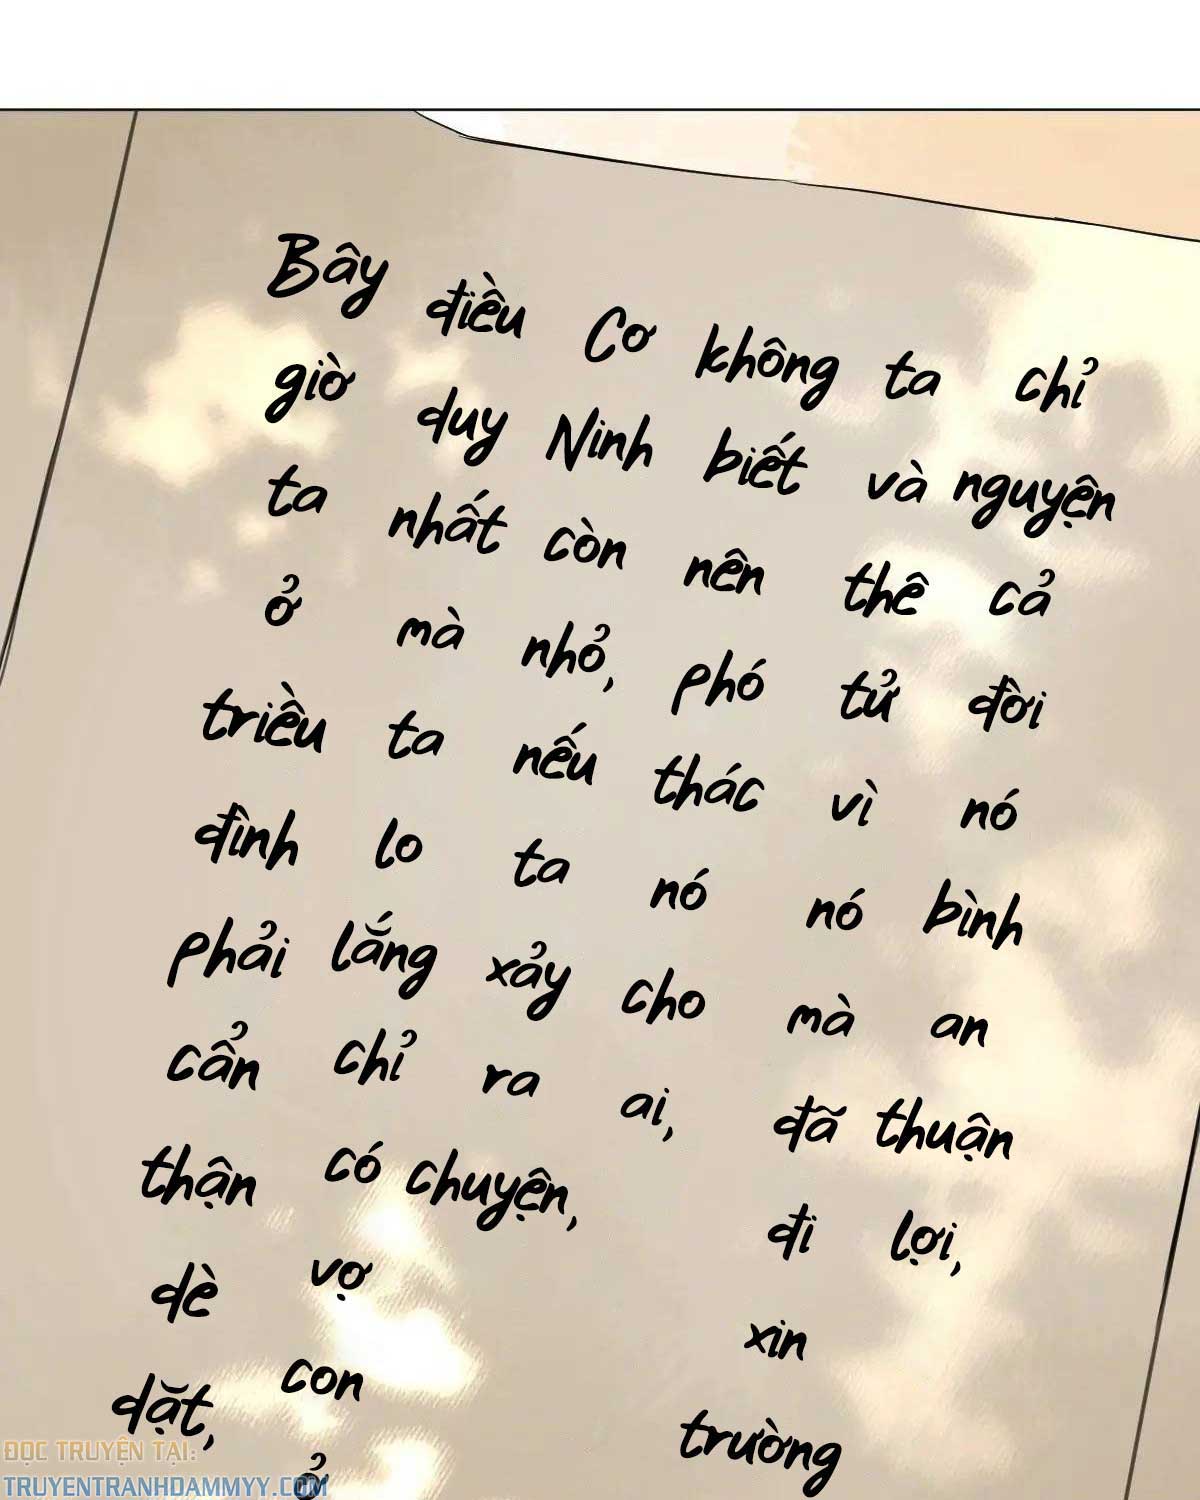 Bây giờ ta ở triều đình phải cẩn thận dè dặt,
điều duy nhất mà ta lo lắng chỉ có vợ con ở
Cơ Ninh còn nhỏ, nếu ta xảy ra chuyện,
không biết nên phó thác nó cho ai,
ta và thê tử vì nó mà đã đi xin trường
chỉ nguyện cả đời nó bình an thuận lợi,
ĐỌC TRUYỆN TẠI:
TRUYENTRANHDAMMYY.COM